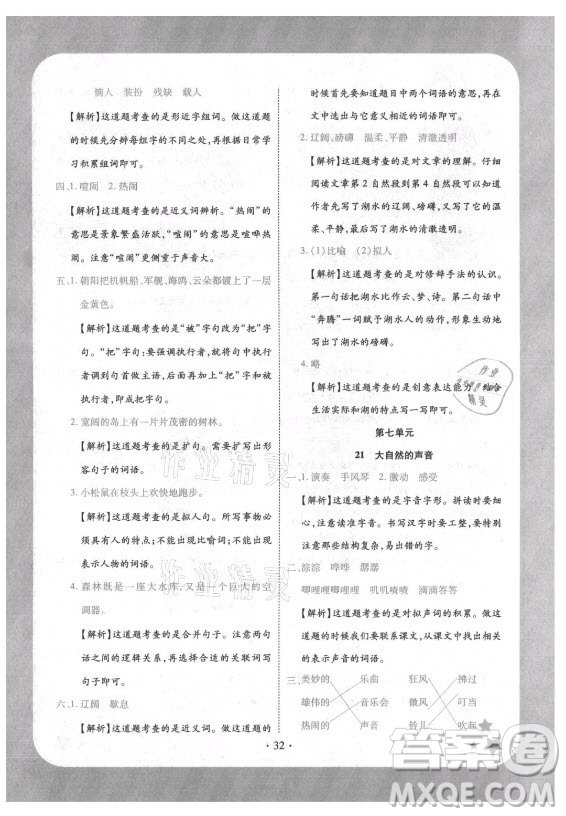 恼人 装扮 残缺 载人
【解析】这道题考查的是形近字组词。做这道题
的时候先分辨每组字的不同之处,再根据日常学
习积累组词即可。
四、1. 喧闹 2. 热闹
【解析】这道题考查的是近义词辨析。“热闹”的
意思是景象繁盛活跃,“喧闹”的意思是喧哗热
闹。注意:“喧闹”更侧重于声音大。
五、1. 朝阳把机帆船、军舰、海鸥、云朵都镀上了一层
金黄色。
【解析】这道题考查的是“被”字句改为“把”字
句。“把”字句:要强调执行者,进行时要把执行
者调到句首做主语,后再加上“把”字,再加上被
执行者。
2. 宽阔的岛上有一片片茂密的树林。
【解析】这道题考查的是扩句。扩句:添加修饰、形
容句子的词语。
3. 小松鼠在枝头上欢快地跑步。
【解析】这道题考查的是拟人句。所写事物必须
具有人的特点;不能出现比喻词;不能出现直接
表人物的词语。
4. 森林既是一座大水库,又是一个巨大的空
调器。
【解析】这道题考查的是合并句子。分析前后两
句话之间的逻辑关系,用关联词语连接成一句完
整句子即可。
六、1. 辽阔 歇息
【解析】这道题考查的是近义词。做这道题的
时候首先要了解题目中两个词语的意思,再在
文中选出与之意思相近的词语即可。
2. 辽阔、磅礴 温柔、平静 清澈透明
【解析】这道题考查的是对文章的理解。仔细
阅读文章第2自然段到第4自然段即可发现,文
章在这里描写了湖水的辽阔、磅礴,写了湖水的温
柔、平静,也写了湖水的清澈透明。
3. (1)比喻 (2)拟人
【解析】这道题考查的是对修辞手法的认识。
第一句话把湖水比作云、梦、诗。第二句话中
“奔腾”一词赋予湖水人的动作,以此来写出湖
水的磅礴。
4. 略
【解析】这道题考查的是创意表达能力。结合
生活实际和湖的特点写出即可。
第七单元
21 大自然的声音
一、1. 演奏 手风琴 2. 激动 感受
【解析】这道题考查的是字音字形。拼读时要先
读准字音。书写汉字时要工整,要特别注意有些
字的结构复杂,易与其他字混淆。
二、淙淙 哗哗 潺潺
唧哩哩唧哩哩 叽叽喳喳 滴滴答答
【解析】这道题考查的是对拟声词的积累。做这
道题的时候要注意联系课文,从课文中找出表示
声音的词语。
三、美妙的 乐曲 狂风 拂过
雄伟的 音乐会 微风 叮当
热闹的 声音 铃儿 吹起
· 32 ·
作业精灵
作业精灵
作业
精灵
答案卷
MXQE.COM